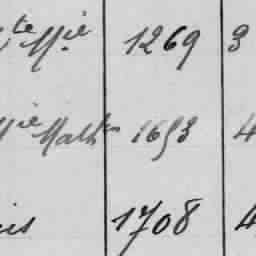 te Mie 1269 3
Mie Math 1653 4
is 1708 4